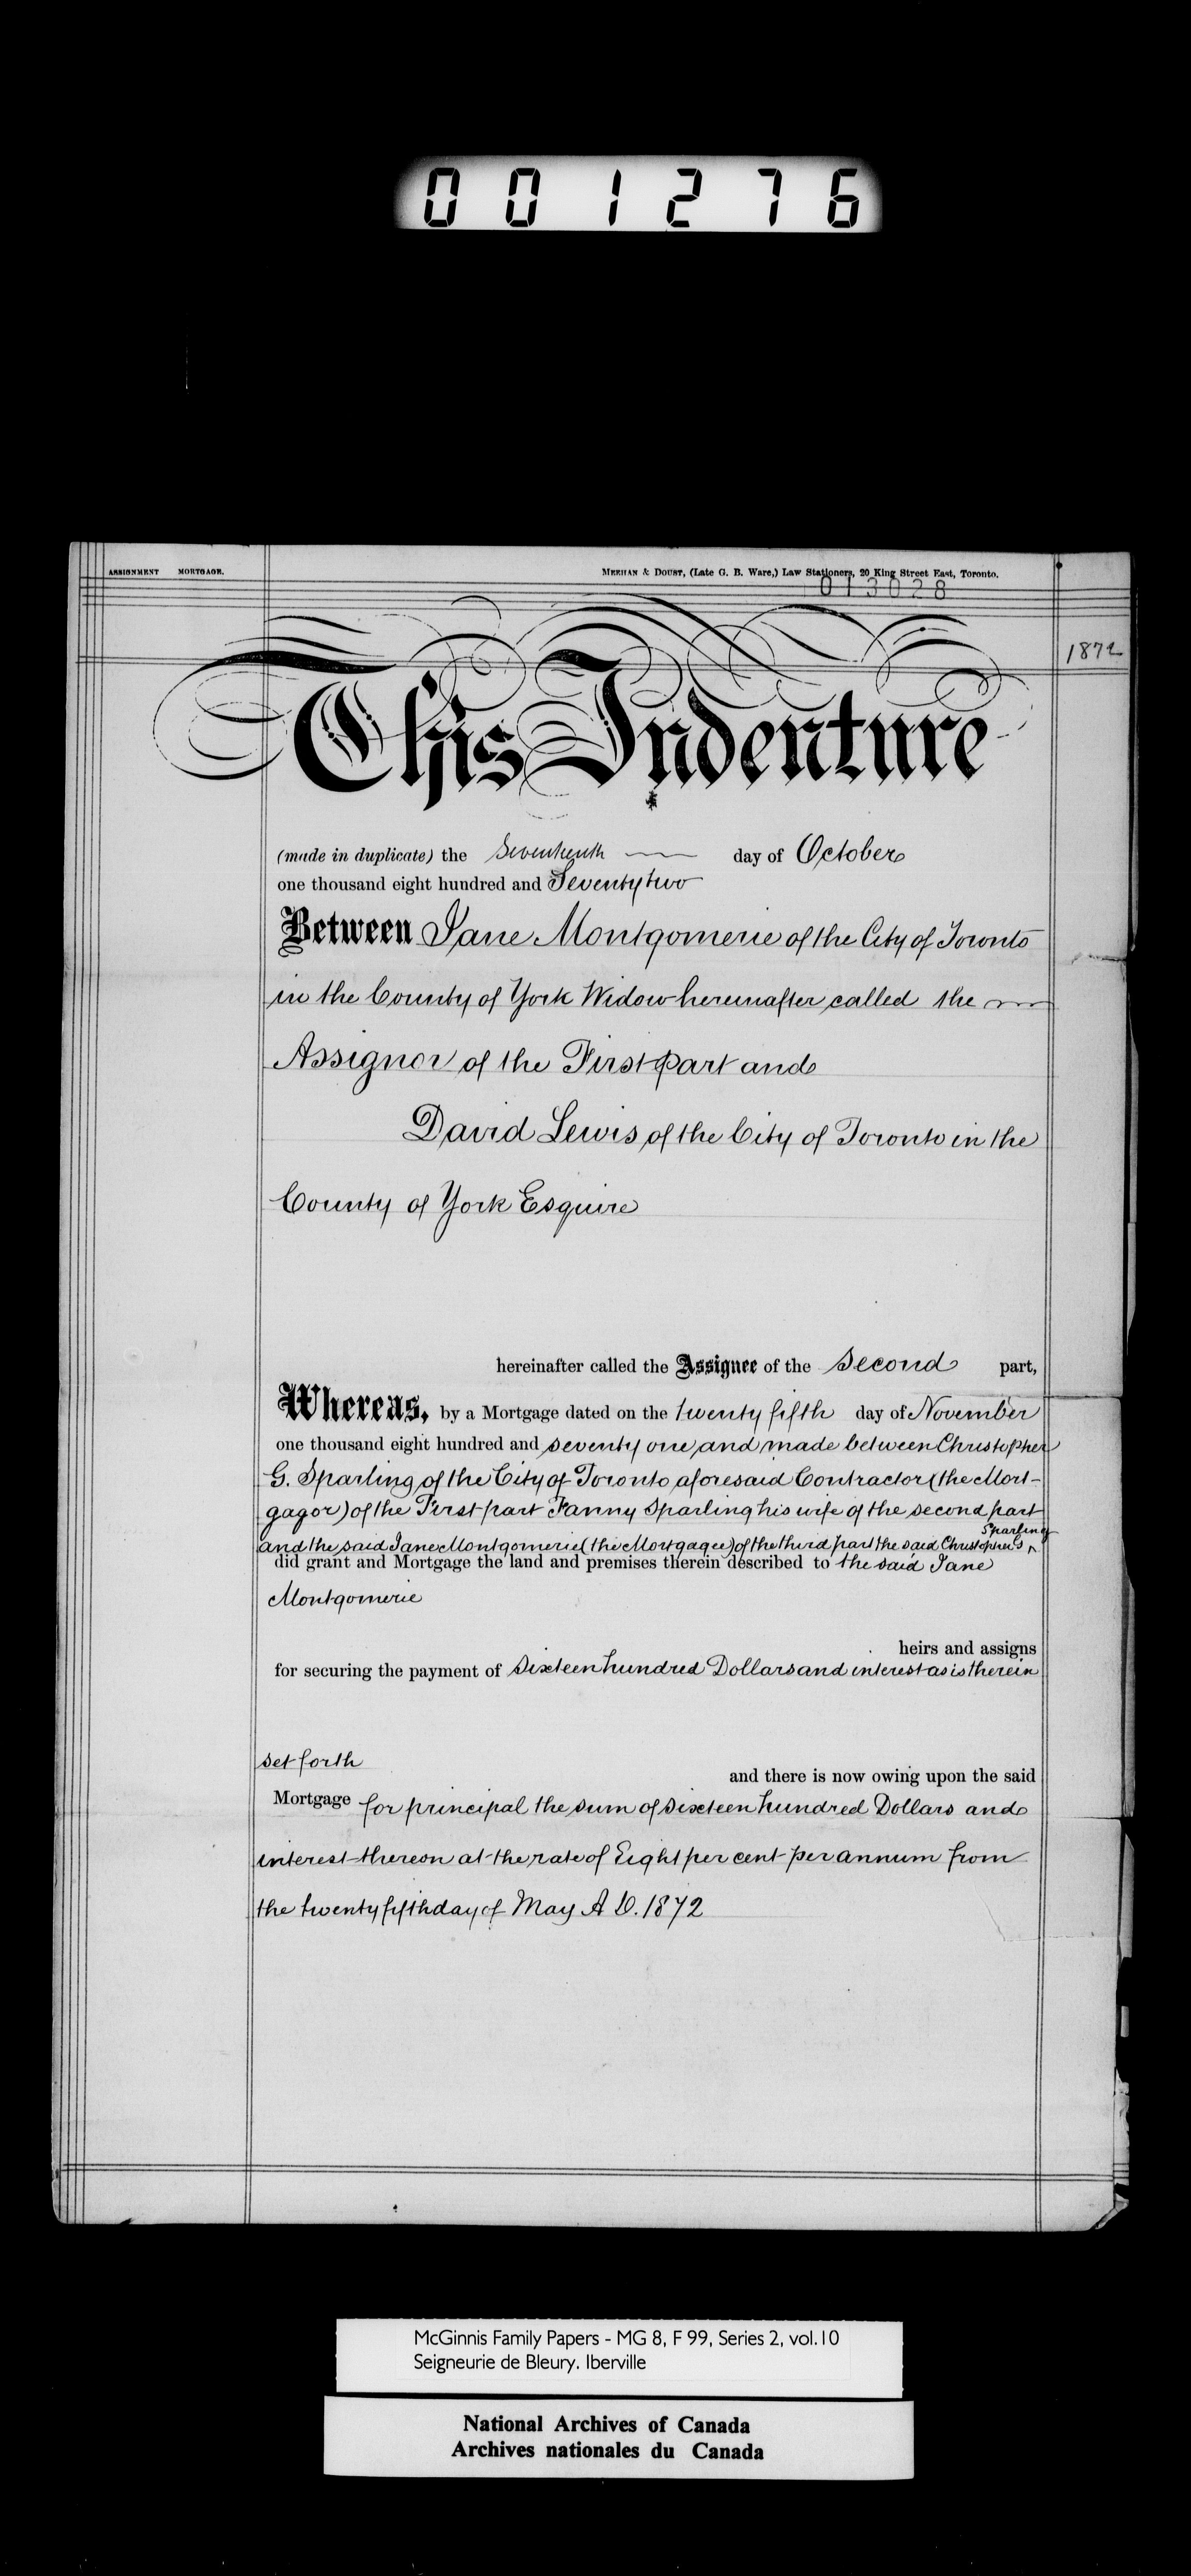 001276
ASSIGNMENT MORTGAGE.
MEEHAN & DOUST, (Late G. B. Ware,) Law Stationers, 20 King Street East, Toronto.
013028
1872
This Indenture
(made in duplicate) the Seventeenth day of October
one thousand eight hundred and Seventy two
Between Jane Montgomerie of the City of Toronto
in the County of York Widow hereinafter called the
Assignor of the First part and
David Lewis of the City of Toronto in the
County of York Esquire
hereinafter called the Assignee of the Second part,
Whereas, by a Mortgage dated on the twenty fifth day of November
one thousand eight hundred and seventy one and made between Christopher
G. Sparling of the City of Toronto aforesaid Contractor (the Mort-
gagor) of the First part Fanny Sparling his wife of the second part
Sparling
and the said Jane Montgomerie (the Mortgagee) of the third part the said Christopher G ^
did grant and Mortgage the land and premises therein described to the said Jane
Montgomerie
heirs and assigns
for securing the payment of Sixteen hundred Dollars and interest as is therein
set forth
and there is now owing upon the said
Mortgage for principal the sum of sixteen hundred Dollars and
interest thereon at the rate of Eight per cent per annum from
the twenty fifth day of May A D. 1872
McGinnis Family Papers - MG 8, F 99, Series 2, vol.10
Seigneurie de Bleury. Iberville
National Archives of Canada
Archives nationales du Canada